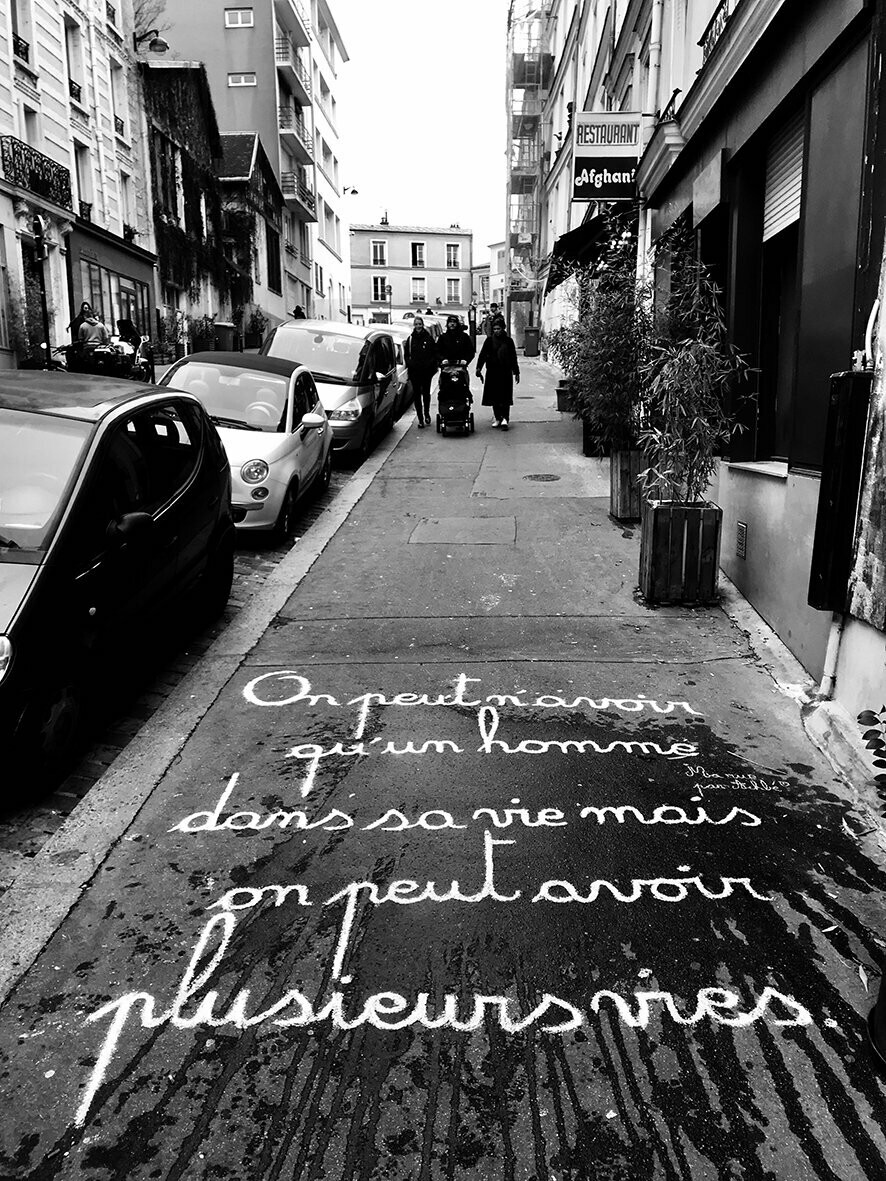 RESTAURANT
Afghani
On peut n'avoir
qu'un homme
Ma rue
par Albé
dans sa vie mais
on peut avoir
plusieurs vies.